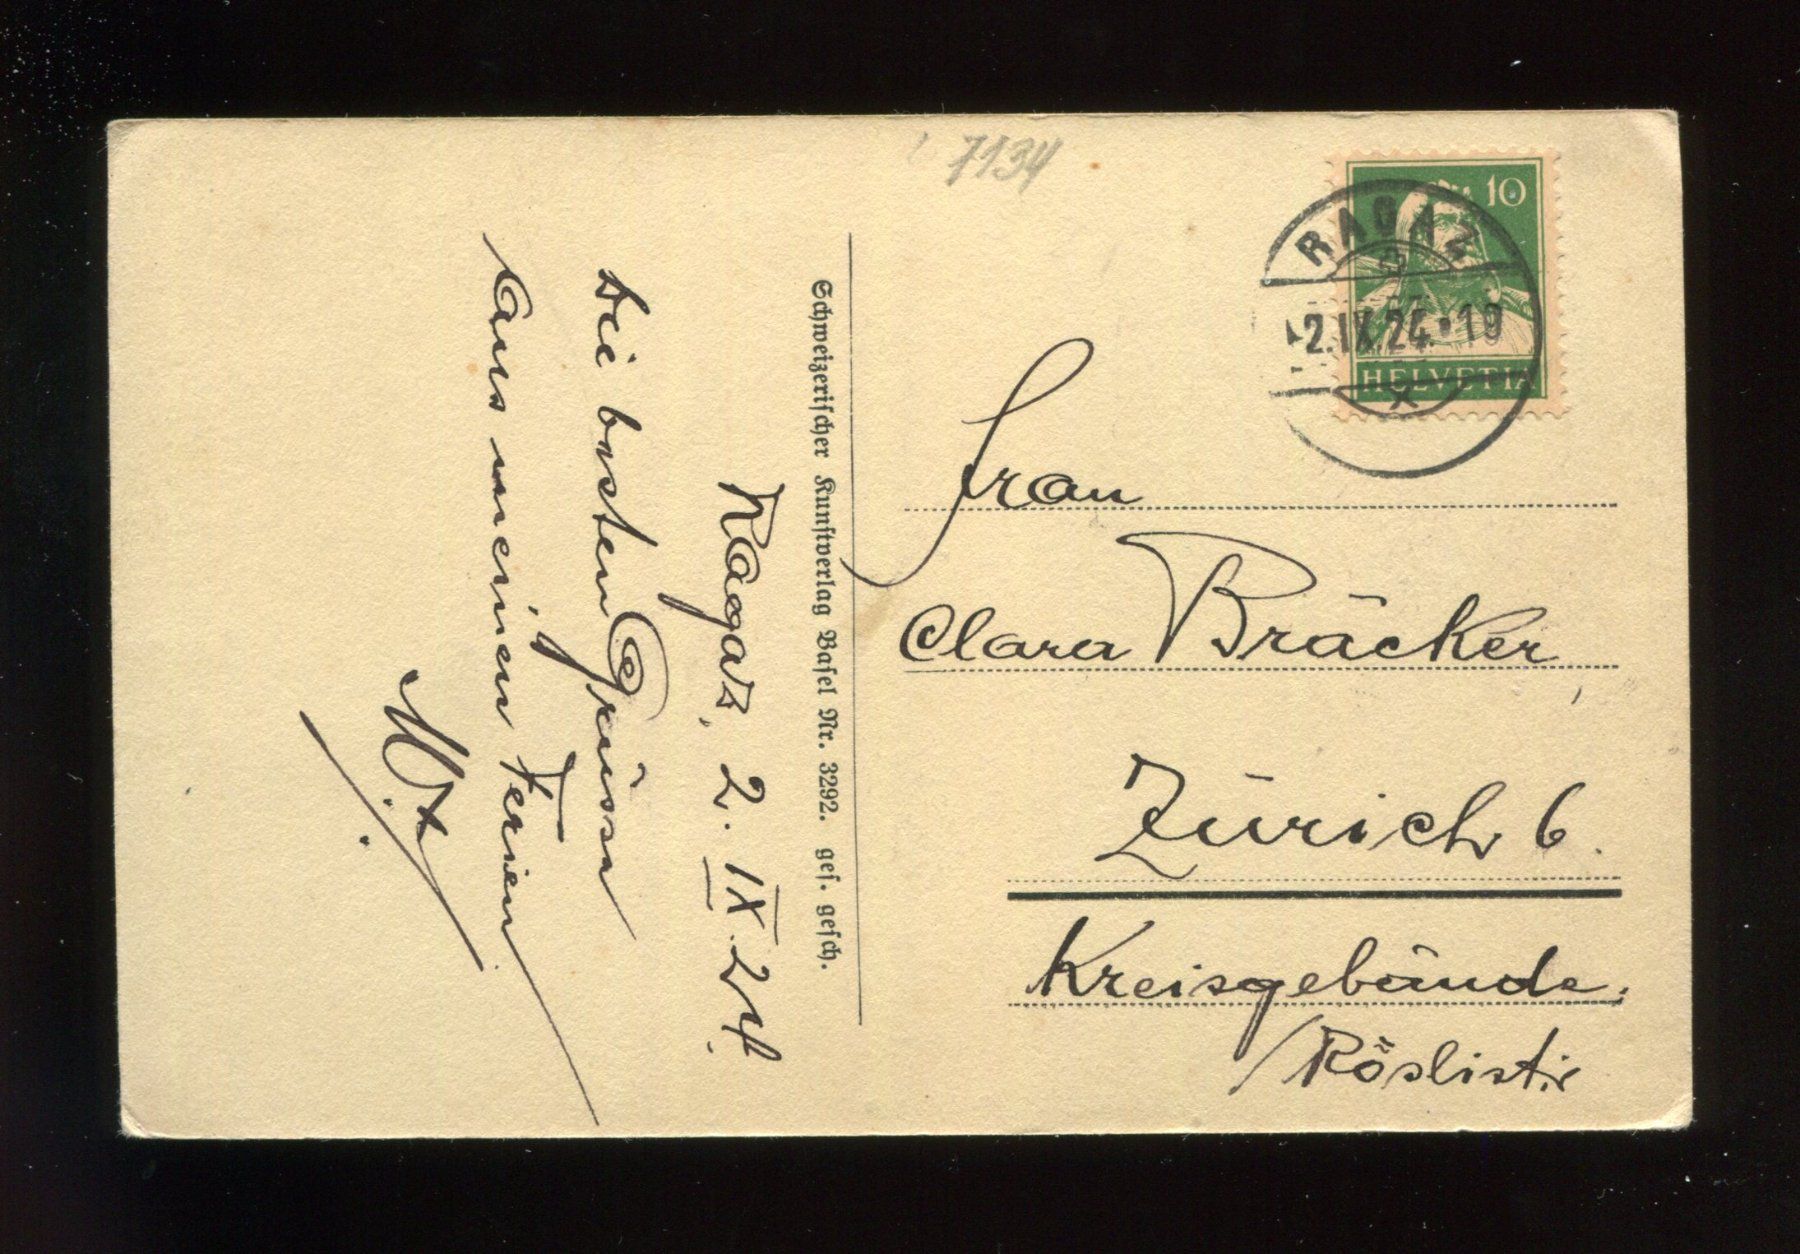 7134
10
RAGAZ
2.IX.24.-19
HELVETIA
Frau
Clara Bräcker
Zürich 6.
Kreisgebäude.
/Röslistr
Schweizerischer Kunstverlag Basel Nr. 3292. ges. gesch.
Ragaz, 2. IX. 24.
die besten Grüsse
aus meinen Ferien